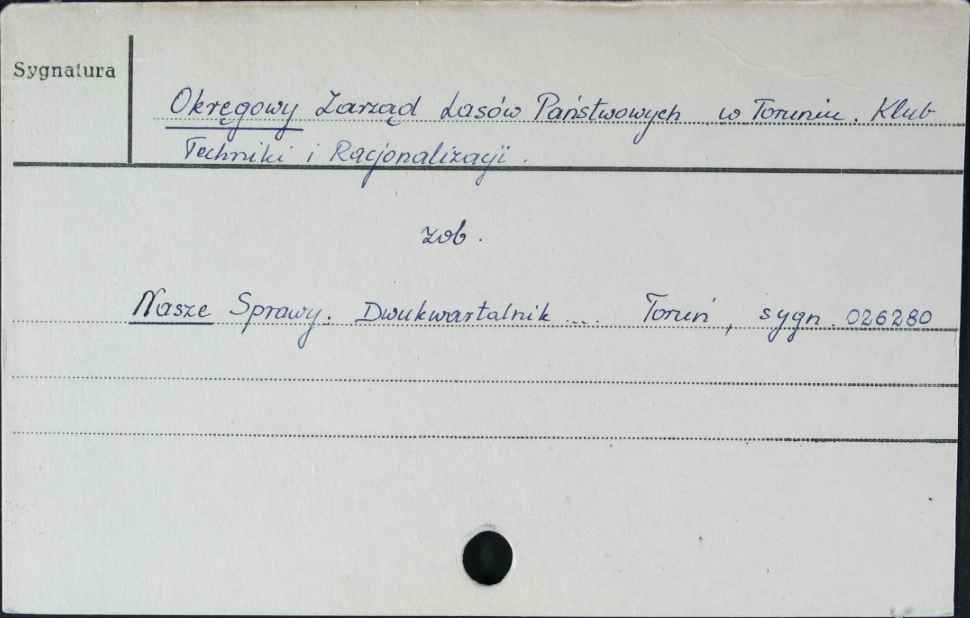 Sygnatura
Okręgowy Zarząd Lasów Państwowych w Toruniu. Klub
Techniki i Racjonalizacji.
zob.
Nasze Sprawy. Dwukwartalnik ... Toruń, sygn. 026280